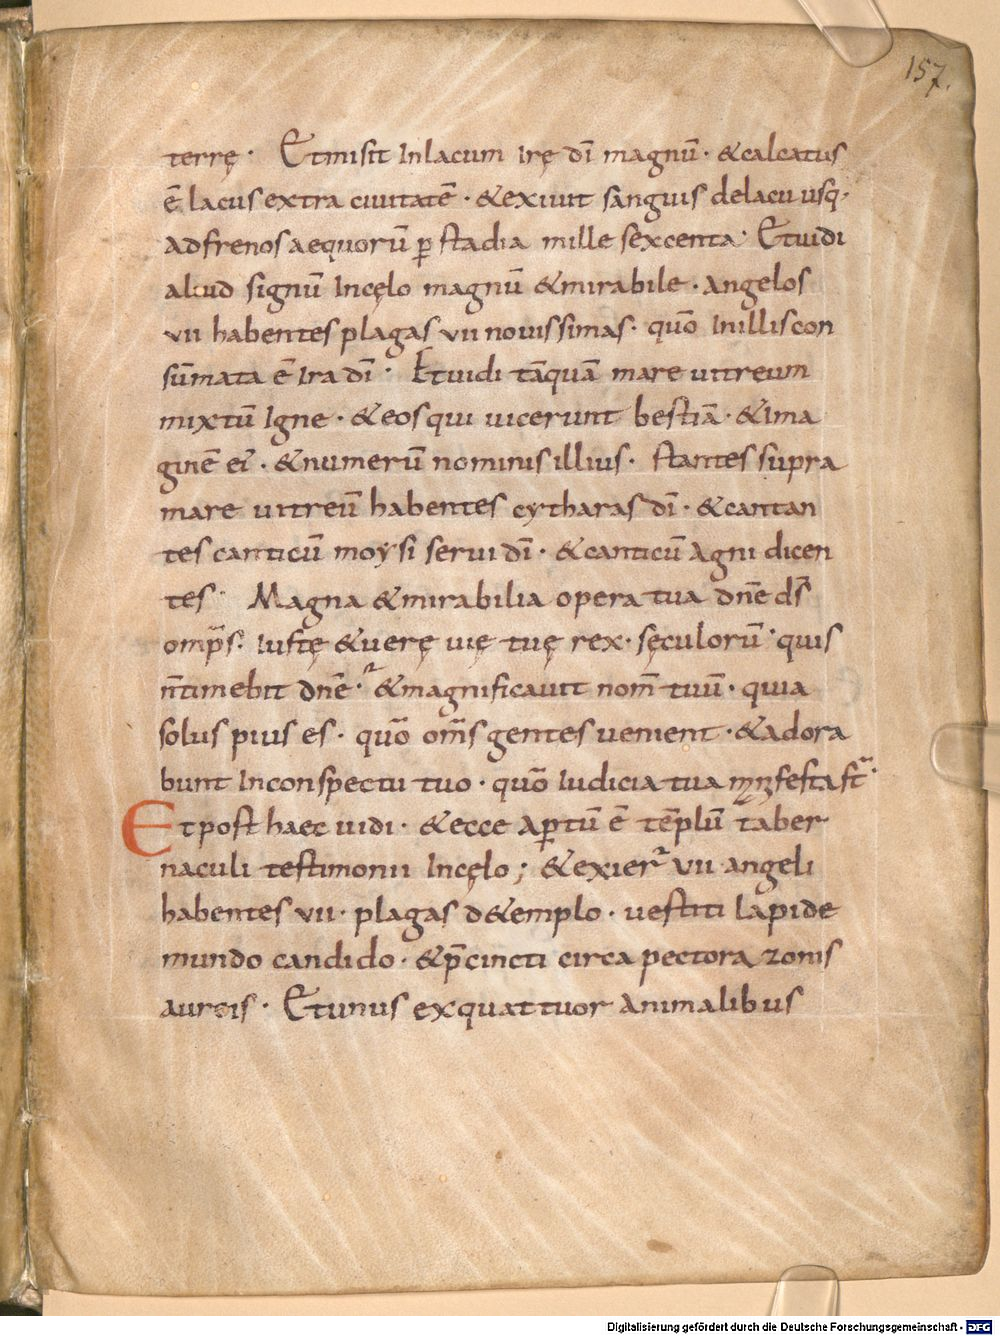 157.
terrę · Et misit In lacum Irę dı̄ magnū · & calcatus
ē lacus extra ciuitatē · & exiuit sanguis de lacu usq·
ad frenos aequorū ꝑ stadia mille sexcenta · Et uidi
aliud signū In cęlo magnū & mirabile · Angelos
vii habentes plagas vii nouissimas · quō In illis con
sūmata ē Ira dı̄ · Et uidi tāquā mare uitreum
mixtū Igne · & eos qui uicerunt bestiā · & Ima
ginē eiꝰ · & numerū nominis illius · stantes supra
mare uitreū habentes cytharas dı̄ · & cantan
tes canticū moysi serui dı̄ · & canticū Agni dicen
tes · Magna & mirabilia opera tua dn̄e ds̄
omp̄s · Iustę & uerę uię tuę rex · sęculorū · quis
n̄ timebit dn̄e · & magnificauit nom̄ tuū · quia
solus pius es · quō om̄s gentes uenient · & adora
bunt In conspectu tuo · quō Iudicia tua manifesta st̄ ·
Et post haec uidi · & ecce aꝑtū ē tēplū taber
naculi testimonii In cęlo ; & exier̄ vii angeli
habentes vii · plagas d&emplo · uestiti lapide
mundo candido · & p̄cincti circa pectora zonis
aureis · Et unus ex quattuor animalibus
Digitalisierung gefördert durch die Deutsche Forschungsgemeinschaft - DFG